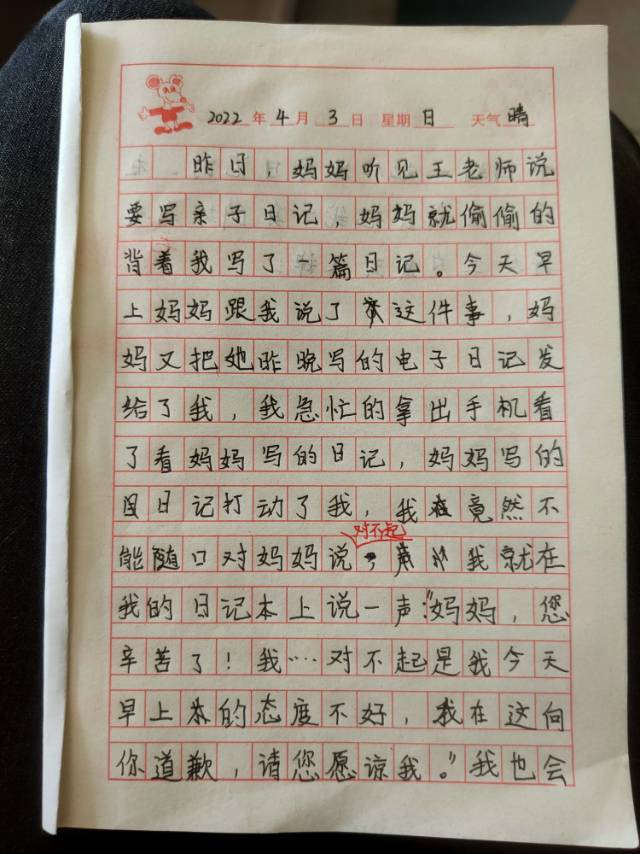 2022年4月3日 星期日 天气晴
昨日，妈妈听见王老师说
要写亲子日记，妈妈就偷偷的
背着我写了一篇日记。今天早
上妈妈跟我说了这件事，妈
妈又把她昨晚写的电子日记发
给了我，我急忙的拿出手机看
了看妈妈写的日记，妈妈写的
日记打动了我，我竟然不
对不起
能随口对妈妈说，我就在
我的日记本上说一声："妈妈，您
辛苦了！我……对不起是我今天
早上的态度不好，我在这向
你道歉，请您愿谅我。"我也会